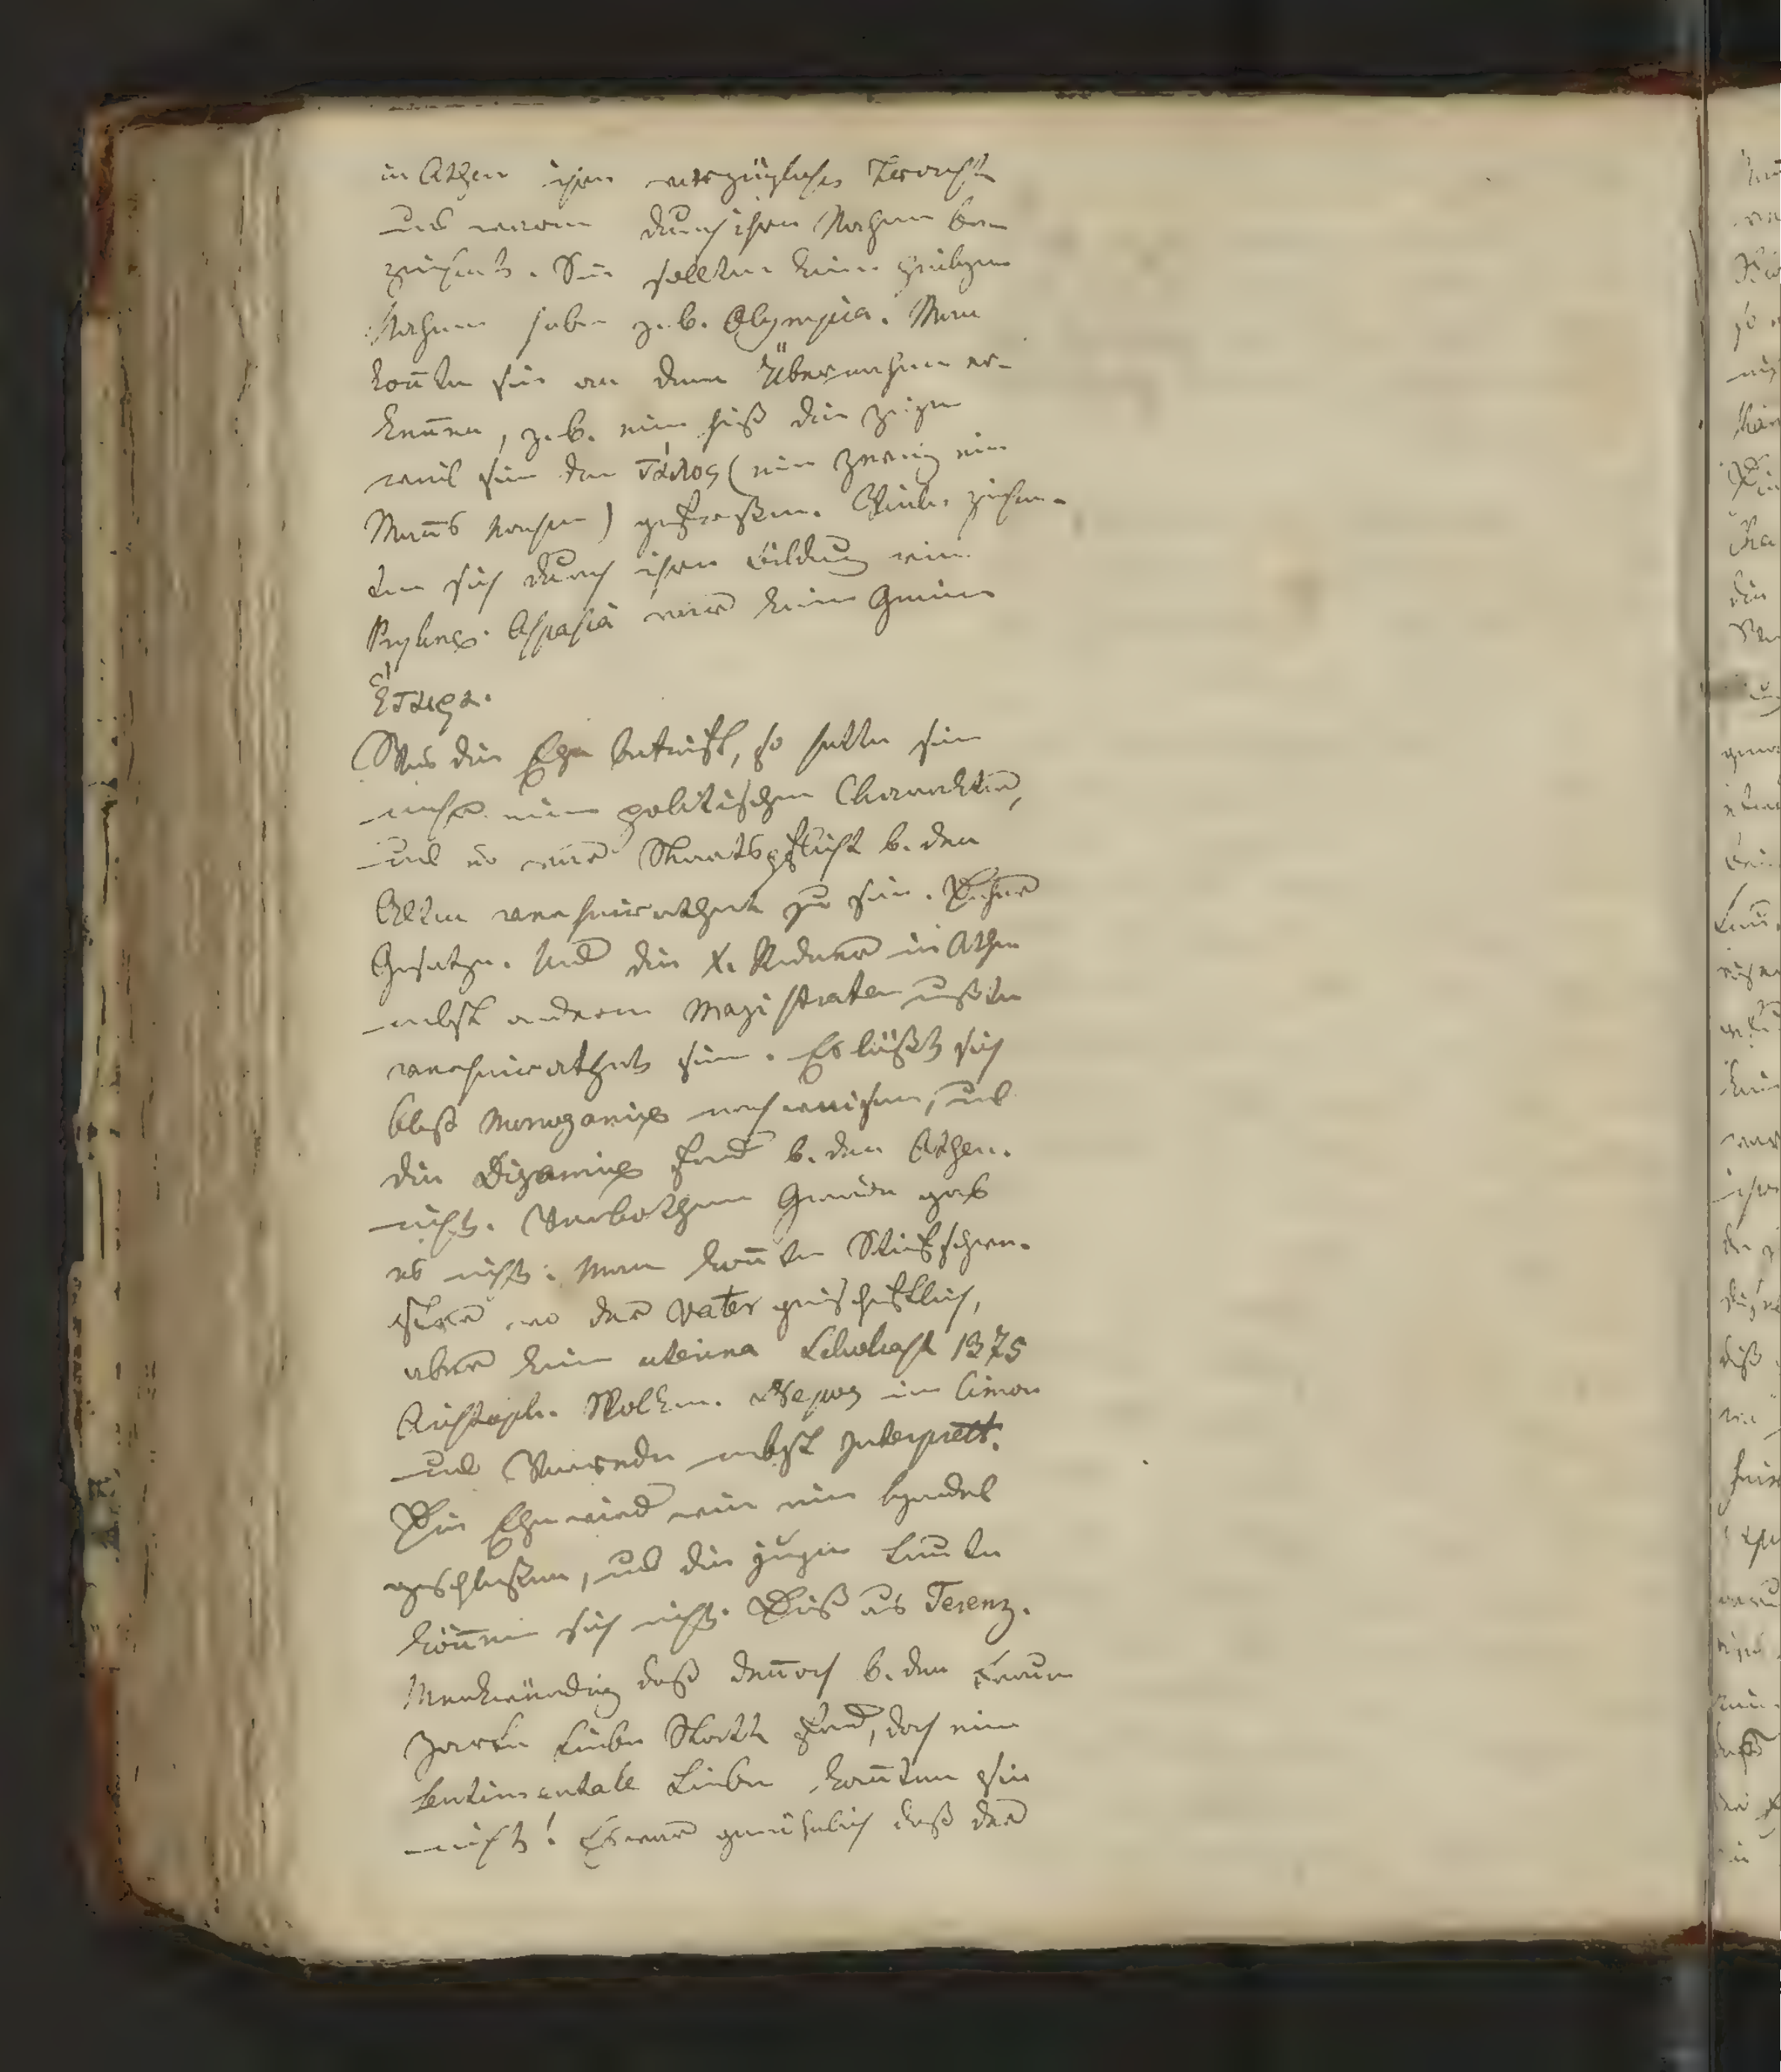 in Athen ihre vorzügliche Tracht
und waren durch ihren Nahmen be-
zeichnet. Sie sollten keine heiligen
Nahmen haben z. b. Olympia. Man
konnte sie an dem Übernahmen er-
kennen, z. b. eine hieß die Ziege
weil sie den (ein Zweig ein
Manns Nahmen) gefressen. Viele zeichne-
ten sich durch ihre Bildung ein
Aspasia war keine Gemeine
ἑταιρα.
Was die Ehe betrifft, so hatte sie
mehr einen politischen Charakter,
und es war Staatspflicht b. den
Alten verheirathet zu sein.
Gesetze. Und die X. Redner in Athen
nebst andern Magistraten mußten
verheirathet sein. Es läßt sich
bloß Monogamie nachweisen, und
die Digamie fand b. den Athen.
nicht. Verbothene Grade gab
es nicht. Man konnte Stiefschwe-
ster wo der Vater gemeinschaftlich,
aber keine uterina Scholiast 1375
Aristoph. Wolken. Nepos im Cimon
und Vorrede nebst Interprett.
Die Ehe wird wie ein Handel
geschlossen, und die jungen Leute
kennen sich nicht. Dieß aus Terenz.
Merkwürdig daß dennoch b. den Frauen
zarte Liebe Statt fand, doch eine
sentimentale Liebe kannten sie
nicht! Es war gewöhnlich daß der